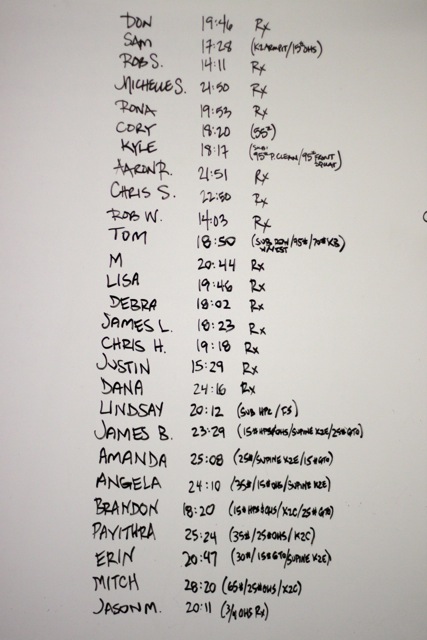 DON 19:46 Rx
SAM 17:28 (K2ARMPIT/15# OHS)
ROB S. 14:11 Rx
MICHELLE S. 21:50 Rx
RONA 19:53 Rx
CORY 18:20 (55#)
KYLE 18:17 (SUB: 95# P.CLEAN/95# FRONT SQUAT)
AARON R. 21:51 Rx
CHRIS S. 22:50 Rx
ROB W. 14:03 Rx
TOM 18:50 (SUB ROW/95#/70# KB)
M 20:44 Rx
LISA 19:46 Rx
DEBRA 18:02 Rx
JAMES L. 18:23 Rx
CHRIS H. 19:18 Rx
JUSTIN 15:29 Rx
DANA 24:16 Rx
LINDSAY 20:12 (SUB HPC/FS)
JAMES B. 23:29 (15# HPS&OHS/SUPINE K2E/25# GTO)
AMANDA 25:08 (25#/SUPINE K2E/15# GTO)
ANGELA 24:10 (35#/15# OHS/SUPINE K2E)
BRANDON 18:20 (15# HPS&OHS/K2C/25# GTO)
PAVITHRA 25:24 (35#/25# OHS/K2C)
ERIN 20:47 (30#/15# GTO/SUPINE K2E)
MITCH 28:20 (65#/25# OHS/K2C)
JASON M. 20:11 (3/4 OHS Rx)